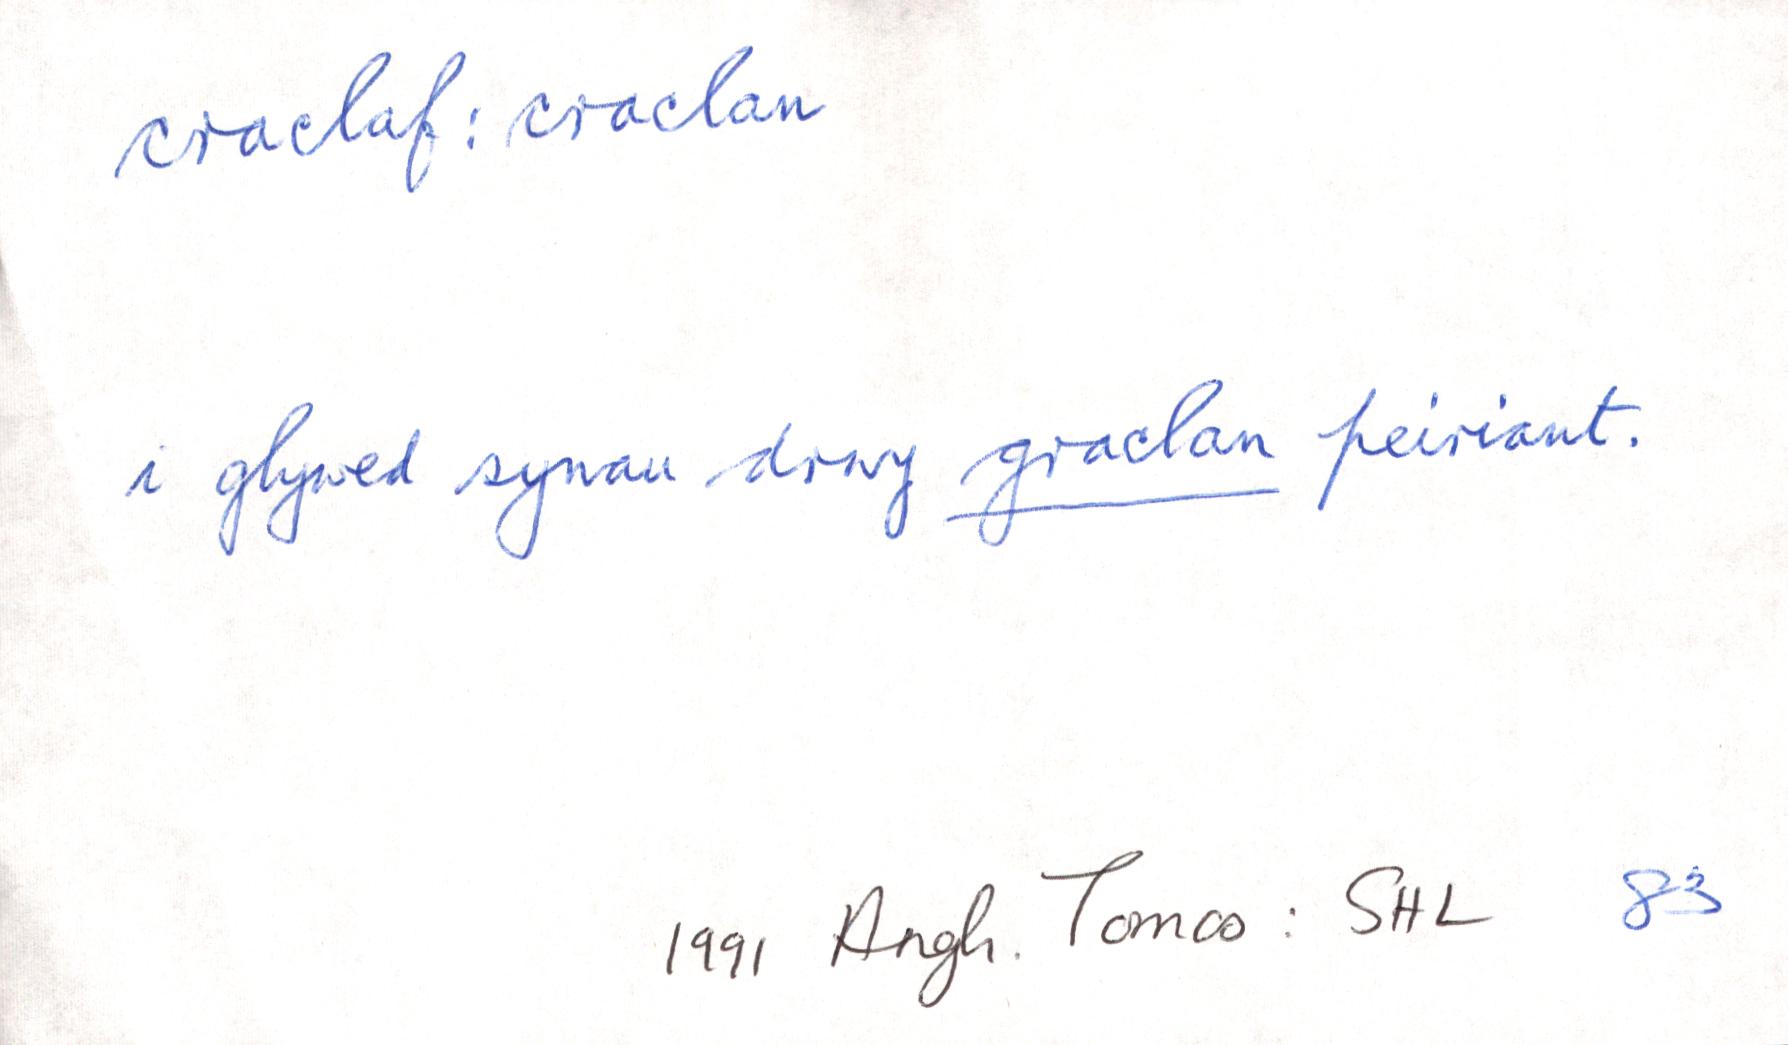 craclaf: craclan
i glywed synau drwy graclan peiriant.
1991 Angh. Tomos: SHL 83